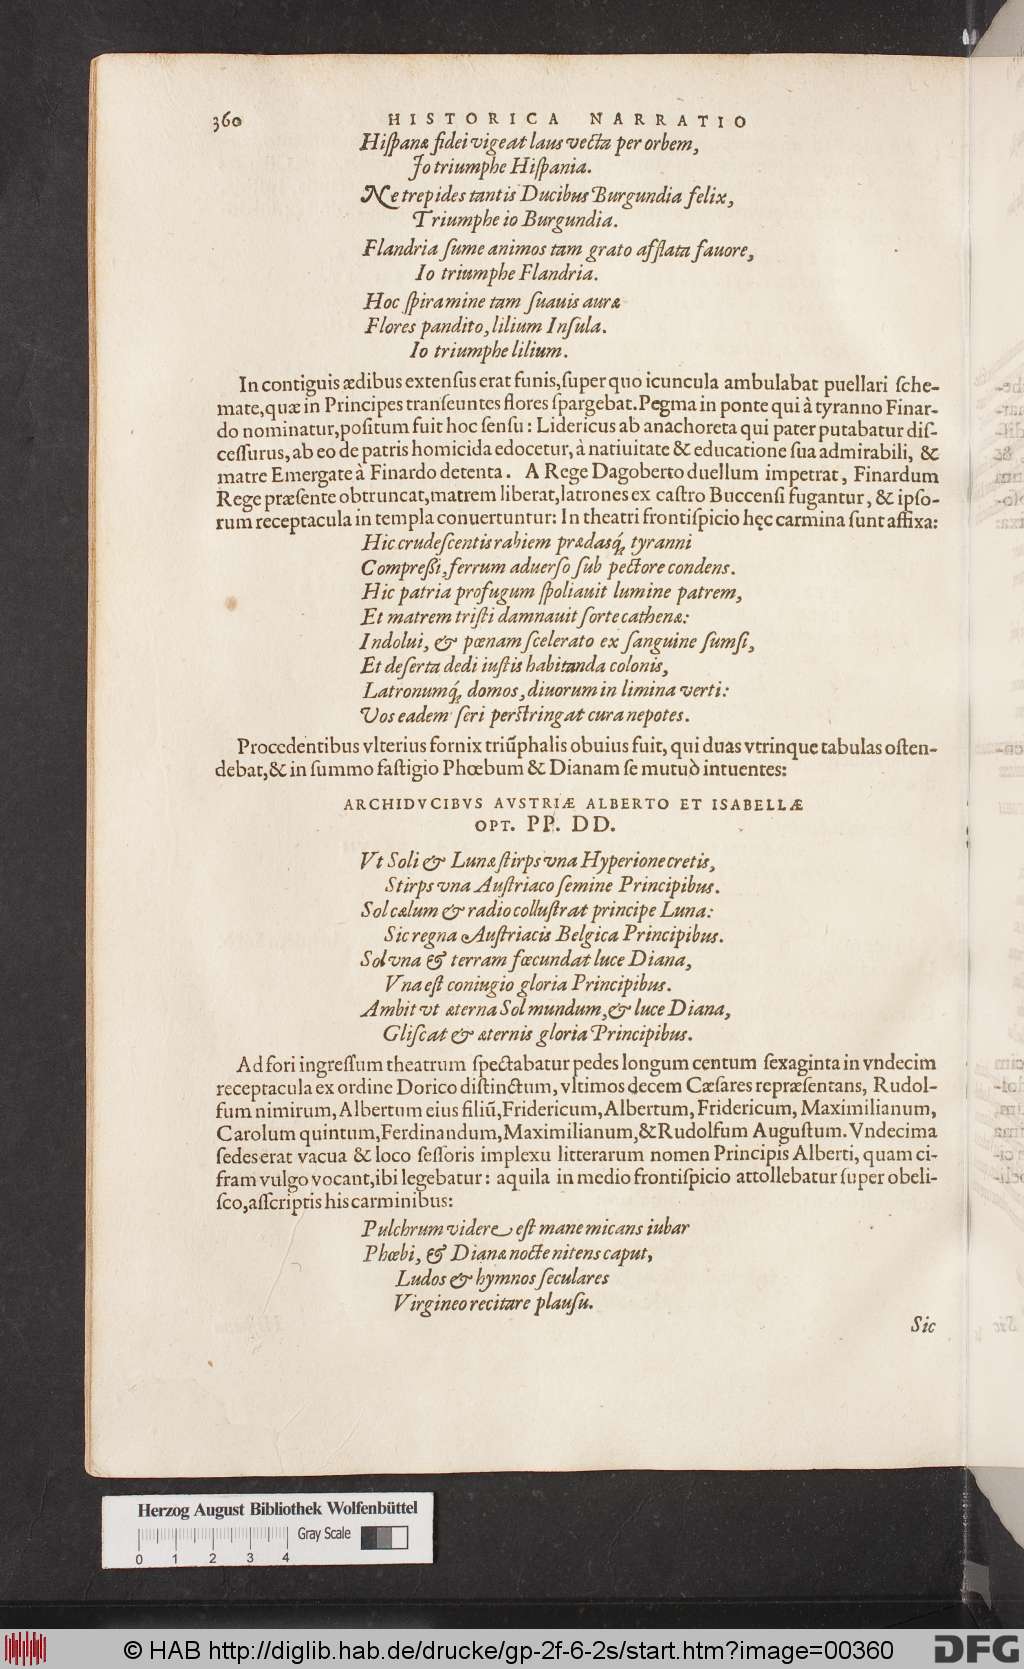 360 HISTORICA NARRATIO
Hiſpanæ fidei vigeat laus vecta per orbem,
Jo triumphe Hiſpania.
Ne trepides tantis Ducibus Burgundia felix,
Triumphe io Burgundia.
Flandria ſume animos tam grato afflata fauore,
Io triumphe Flandria.
Hoc ſpiramine tam ſuauis auræ
Flores pandito, lilium Inſula.
Io triumphe lilium.
In contiguis ædibus extenſus erat funis, ſuper quo icuncula ambulabat puellari ſche-
mate, quæ in Principes tranſeuntes flores ſpargebat. Pegma in ponte qui à tyranno Finar-
do nominatur, poſitum fuit hoc ſenſu: Lidericus ab anachoreta qui pater putabatur diſ-
ceſſurus, ab eo de patris homicida edocetur, à natiuitate & educatione ſua admirabili, &
matre Emergate à Finardo detenta. A Rege Dagoberto duellum impetrat, Finardum
Rege præſente obtruncat, matrem liberat, latrones ex caſtro Buccenſi fugantur, & ipſo-
rum receptacula in templa conuertuntur: In theatri frontiſpicio hęc carmina ſunt affixa:
Hic crudeſcentis rabiem prædasq́; tyranni
Compreßi, ferrum aduerſo ſub pectore condens.
Hic patria profugum ſpoliauit lumine patrem,
Et matrem triſti damnauit ſorte cathenæ:
Indolui, & pœnam ſcelerato ex ſanguine ſumſi,
Et deſerta dedi iuſtis habitanda colonis,
Latronumq́; domos, diuorum in limina verti:
Vos eadem ſeri perſtringat cura nepotes.
Procedentibus vlterius fornix triūphalis obuius fuit, qui duas vtrinque tabulas oſten-
debat, & in ſummo faſtigio Phœbum & Dianam ſe mutuò intuentes:
ARCHIDVCIBVS AVSTRIÆ ALBERTO ET ISABELLÆ
OPT. PP. DD.
Vt Soli & Lunæ ſtirps vna Hyperione cretis,
Stirps vna Auſtriaco ſemine Principibus.
Sol cælum & radio colluſtrat principe Luna:
Sic regna Auſtriacis Belgica Principibus.
Sol vna & terram fœcundat luce Diana,
Vna eſt coniugio gloria Principibus.
Ambit vt æterna Sol mundum, & luce Diana,
Gliſcat & æternis gloria Principibus.
Ad fori ingreſſum theatrum ſpectabatur pedes longum centum ſexaginta in vndecim
receptacula ex ordine Dorico diſtinctum, vltimos decem Cæſares repræſentans, Rudol-
fum nimirum, Albertum eius filiū, Fridericum, Albertum, Fridericum, Maximilianum,
Carolum quintum, Ferdinandum, Maximilianum, & Rudolfum Auguſtum. Vndecima
ſedes erat vacua & loco ſeſſoris implexu litterarum nomen Principis Alberti, quam ci-
fram vulgo vocant, ibi legebatur: aquila in medio frontiſpicio attollebatur ſuper obeli-
ſco, aſſcriptis his carminibus:
Pulchrum videre eſt mane micans iubar
Phœbi, & Dianæ nocte nitens caput,
Ludos & hymnos ſeculares
Virgineo recitare plauſu.
Sic
Herzog August Bibliothek Wolfenbüttel
Gray Scale
0 1 2 3 4
© HAB http://diglib.hab.de/drucke/gp-2f-6-2s/start.htm?image=00360
DFG